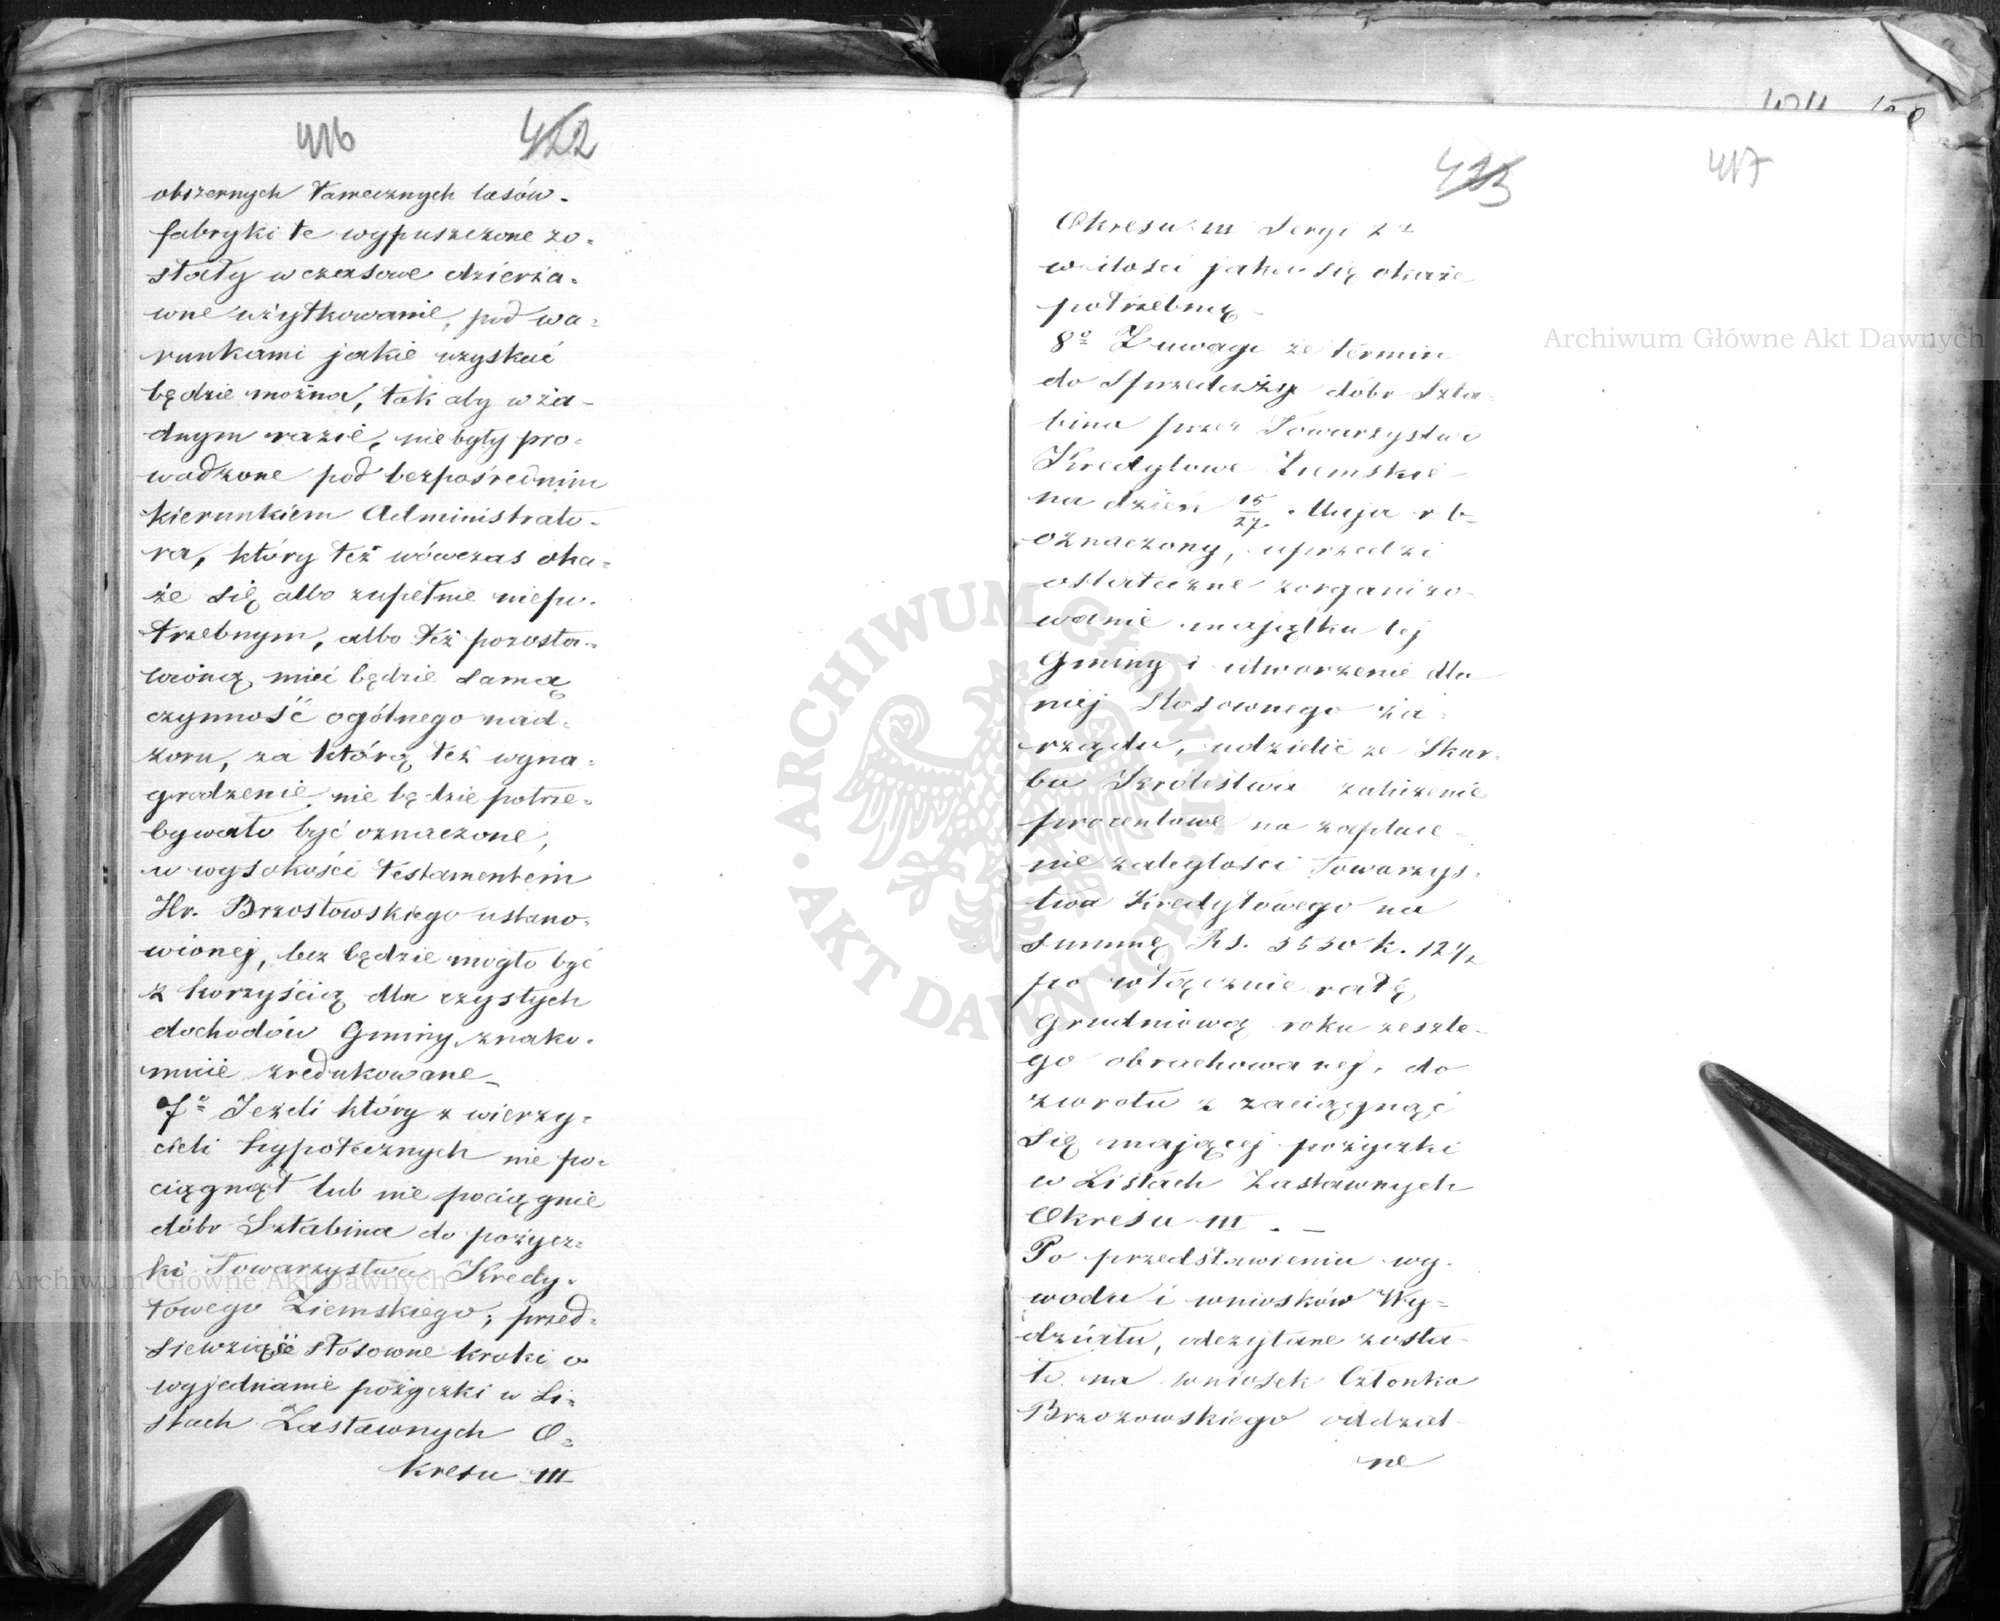 416 422
obszernych tamecznych lasów.
fabryki te wypuszczone zo-
stały w czasowe dzierża-
wne użytkowanie, pod wa-
runkami jakie uzyskać
będzie można, tak aby w ża-
dnym razie, nie były pro-
wadzone pod bezpośrednim
kierunkiem Administrato-
ra, który też wówczas oka-
że się albo zupełnie niepo-
trzebnym, albo też pozosta-
wioną mieć będzie samą
czynność ogólnego nad-
zoru, za którą też wyna-
grodzenie nie będzie potrze-
bywało być oznaczone,
w wysokości testamentem
Hr. Brzostowskiego ustano-
wionej, lecz będzie mogło być
z korzyścią dla czystych
dochodów Gminy, znako-
micie zredukowane
7º Jeżeli który z wierzy-
cieli hypotecznych nie po-
ciągnął lub nie pociągnie
dóbr Sztabina do pożycz-
ki Towarzystwa Kredy-
towego Ziemskiego, przed-
siewziąść stosowne kroki o
wyjednanie pożyczki w Li-
stach Zastawnych O-
kresu III
423 417
Okresu III Seryi 2ej
w ilości jaka się okaże
potrzebną
8º Z uwagi że termin
do sprzedaży dóbr Szta-
bina przez Towarzystwo
Kredytowe Ziemskie
na dzień 15/27 Maja r b
oznaczony, uprzedzi
ostateczne zorganizo-
wanie majątku tej
Gminy i utworzenie dla
niej stosownego za-
rządu, udzielić ze Skar-
bu Królestwa zaliczenie
procentowe na zapłace-
nie zaległości Towarzys-
twa Kredytowego na
summę Rs. 3530 k. 12 1/2
po włącznie ratę
Grudniową roku zeszłe-
go obrachowanej, do
zwrotu z zaciągnąć
się mającej pożyczki
w Listach Zastawnych
Okresu III. —
Po przedstawieniu wy-
wodu i wniosków Wy-
działu, odczytane zosta-
ło na wniosek Członka
Brzozowskiego oddziel-
ne
Archiwum Główne Akt Dawnych
Archiwum Główne Akt Dawnych
ARCHIWUM GŁÓWNE AKT DAWNYCH